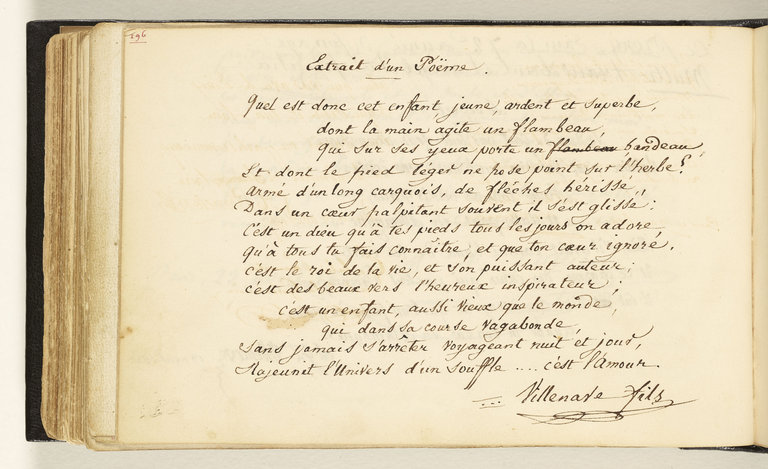 196
Extrait d'un Poëme.
Quel est donc cet enfant jeune, ardent et superbe,
dont la main agite un flambeau,
qui sur ses yeux porte un flambeau bandeau,
Et dont le pied léger ne pose point sur l'herbe?
armé d'un long carquois, de flêches hérissé,
Dans un cœur palpitant souvent il s'est glissé:
C'est un dieu qu'à tes pieds tous les jours on adore,
Qu'à tous tu fais connaître, et que ton cœur ignore.
C'est le roi de la vie, et son puissant auteur;
c'est des beaux vers l'heureux inspirateur;
c'est un enfant, aussi vieux que le monde,
qui dans sa course vagabonde,
Sans jamais s'arrêter voyageant nuit et jour,
Rajeunit l'Univers d'un souffle .... c'est l'Amour.
Villenave fils